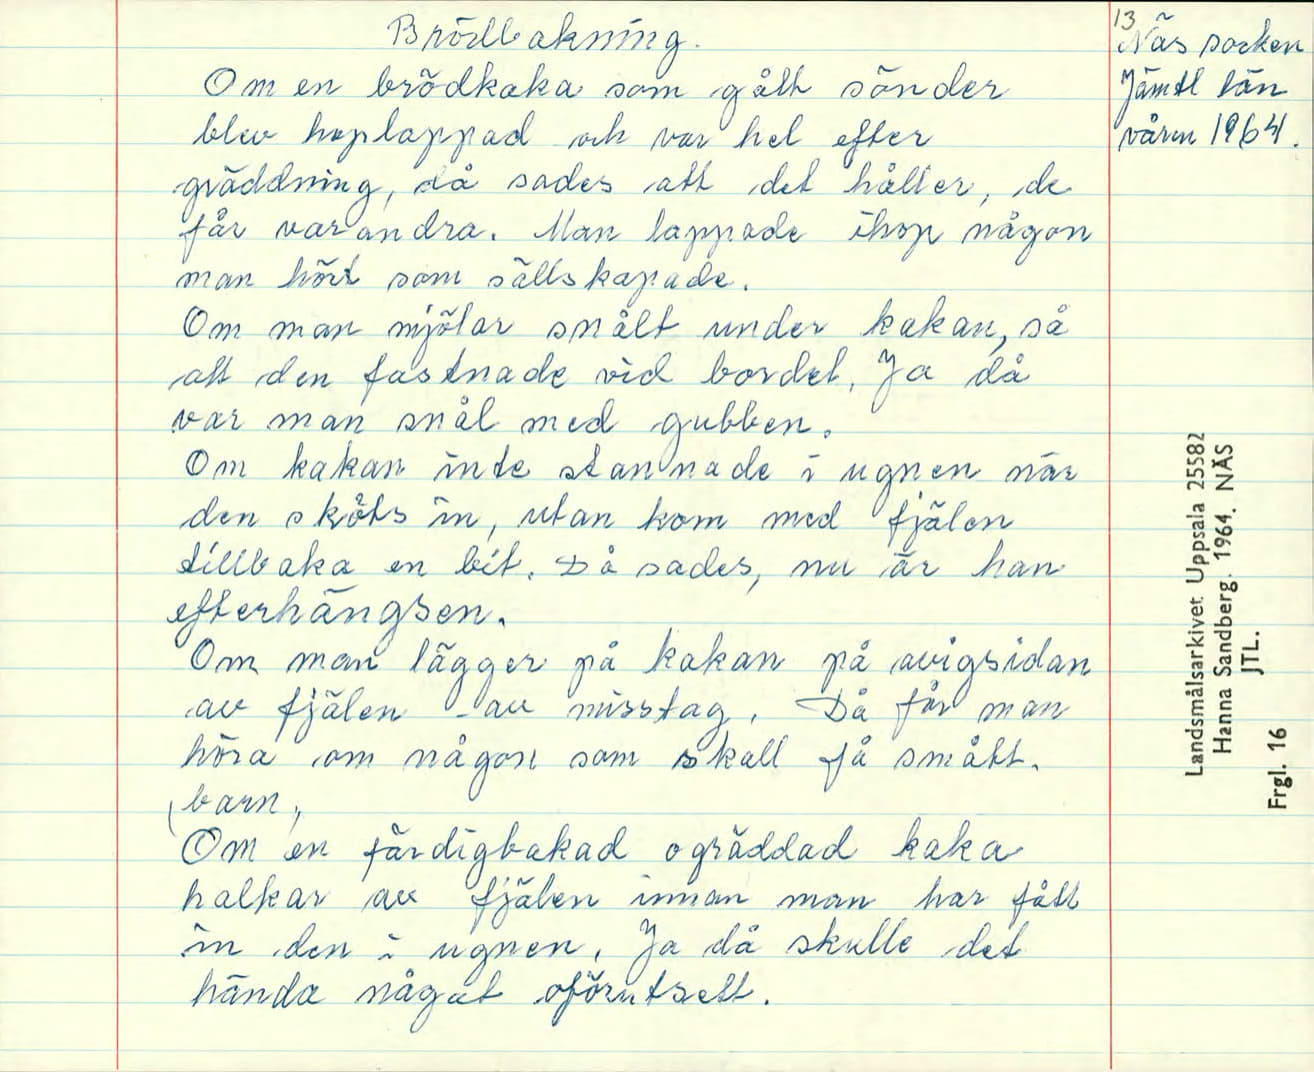 Brödbakning.
Om en brödkaka som gått sönder
blev hoplappad och var hel efter
gräddning, då sades att det håller, de
får varandra. Man lappade ihop någon
man hört som sällskapade.
Om man mjölar snålt under kakan, så
att den fastnade vid bordet. Ja då
var man snål med gubben.
Om kakan inte stannade i ugnen när
den sköts in, utan kom med fjälen
tillbaka en bit. Då sades, nu är han
efterhängsen.
Om man lägger på kakan på avigsidan
av fjälen - av misstag. Då får man
höra om någon som skall få smått.
(barn,
Om en färdigbakad ogräddad kaka
halkar av fjälen innan man har fått
in den i ugnen. Ja då skulle det
hända något oförutsett.
13
Näs socken
Jämtl län
våren 1964.
Landsmålsarkivet Uppsala 25582
Hanna Sandberg. 1964. NÄS
JTL.
Frgl. 16